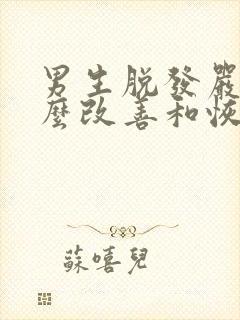 男生脱發嚴
麼改善和恢
蘇嘻兒